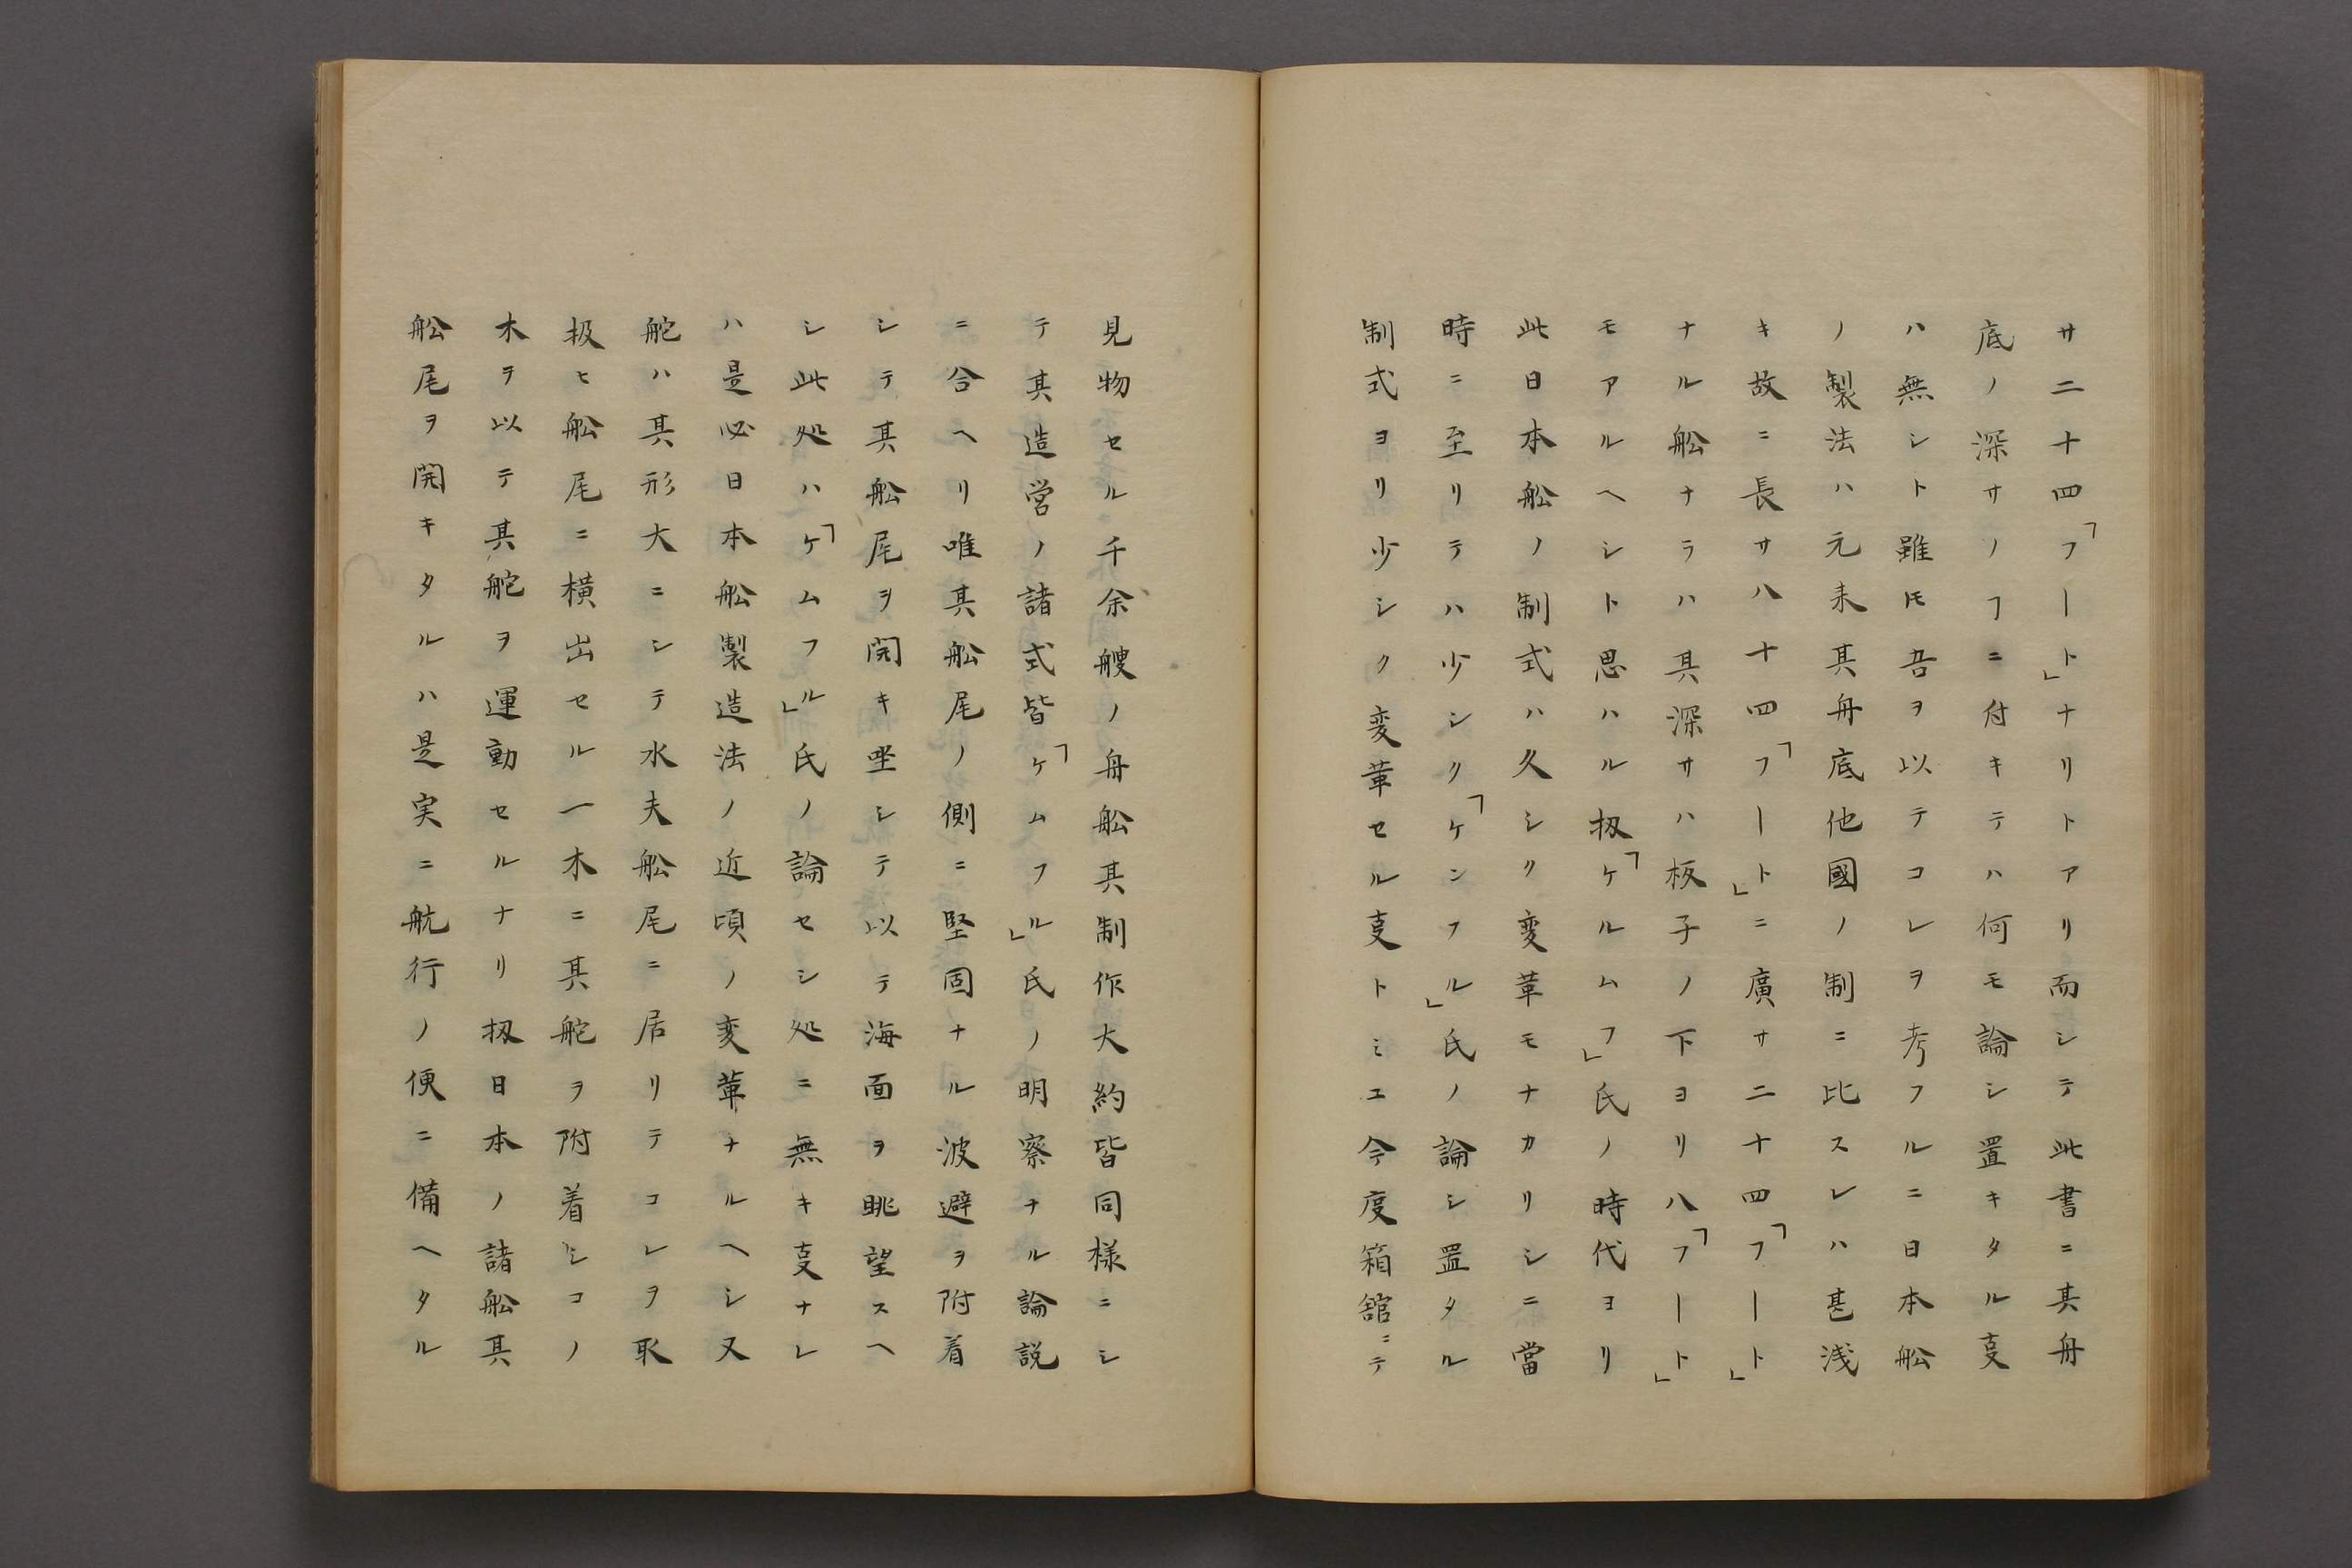 サ二十四「フート」ナリトアリ而シテ此書ニ其舟
底ノ深サノ𬼀ニ付キテハ何モ論シ置キタル㕝
ハ無シト雖𪜈吾ヲ以テコレヲ考フルニ日本舩
ノ製法ハ元来其舟底他國ノ制ニ比スレハ甚浅
キ故ニ長サ八十四「フート」ニ廣サ二十四「フート」
ナル舩ナラハ其深サハ板子ノ下ヨリ八「フート」
モアルヘシト思ハル扨「ケルムフ」氏ノ時代ヨリ
此日本舩ノ制式ハ久シク変革モナカリシニ當
時ニ至リテハ少シク「ケンフル」氏ノ論シ置タル
制式ヨリ少シク変革セル㕝トミエ今度箱舘ニテ
見物セル千余艘ノ舟舩其制作大約皆同様ニシ
テ其造営ノ諸式皆「ケムフル」氏ノ明察ナル論説
ニ合ヘリ唯其舩尾ノ側ニ堅固ナル波避ヲ附着
シテ其舩尾ヲ開キ坐シテ以テ海面ヲ眺望スヘ
シ此処ハ「ケムフル」氏ノ論セシ処ニ無キ㕝ナレ
ハ是必日本舩製造法ノ近頃ノ変革ナルヘシ又
舵ハ其形大ニシテ水夫舩尾ニ居リテコレヲ取
扱ヒ舩尾ニ横出セル一木ニ其舵ヲ附着シコノ
木テ以テ其舵ヲ運動セルナリ扨日本ノ諸舩其
舩尾ヲ開キタルハ是実ニ航行ノ便ニ備ヘタル